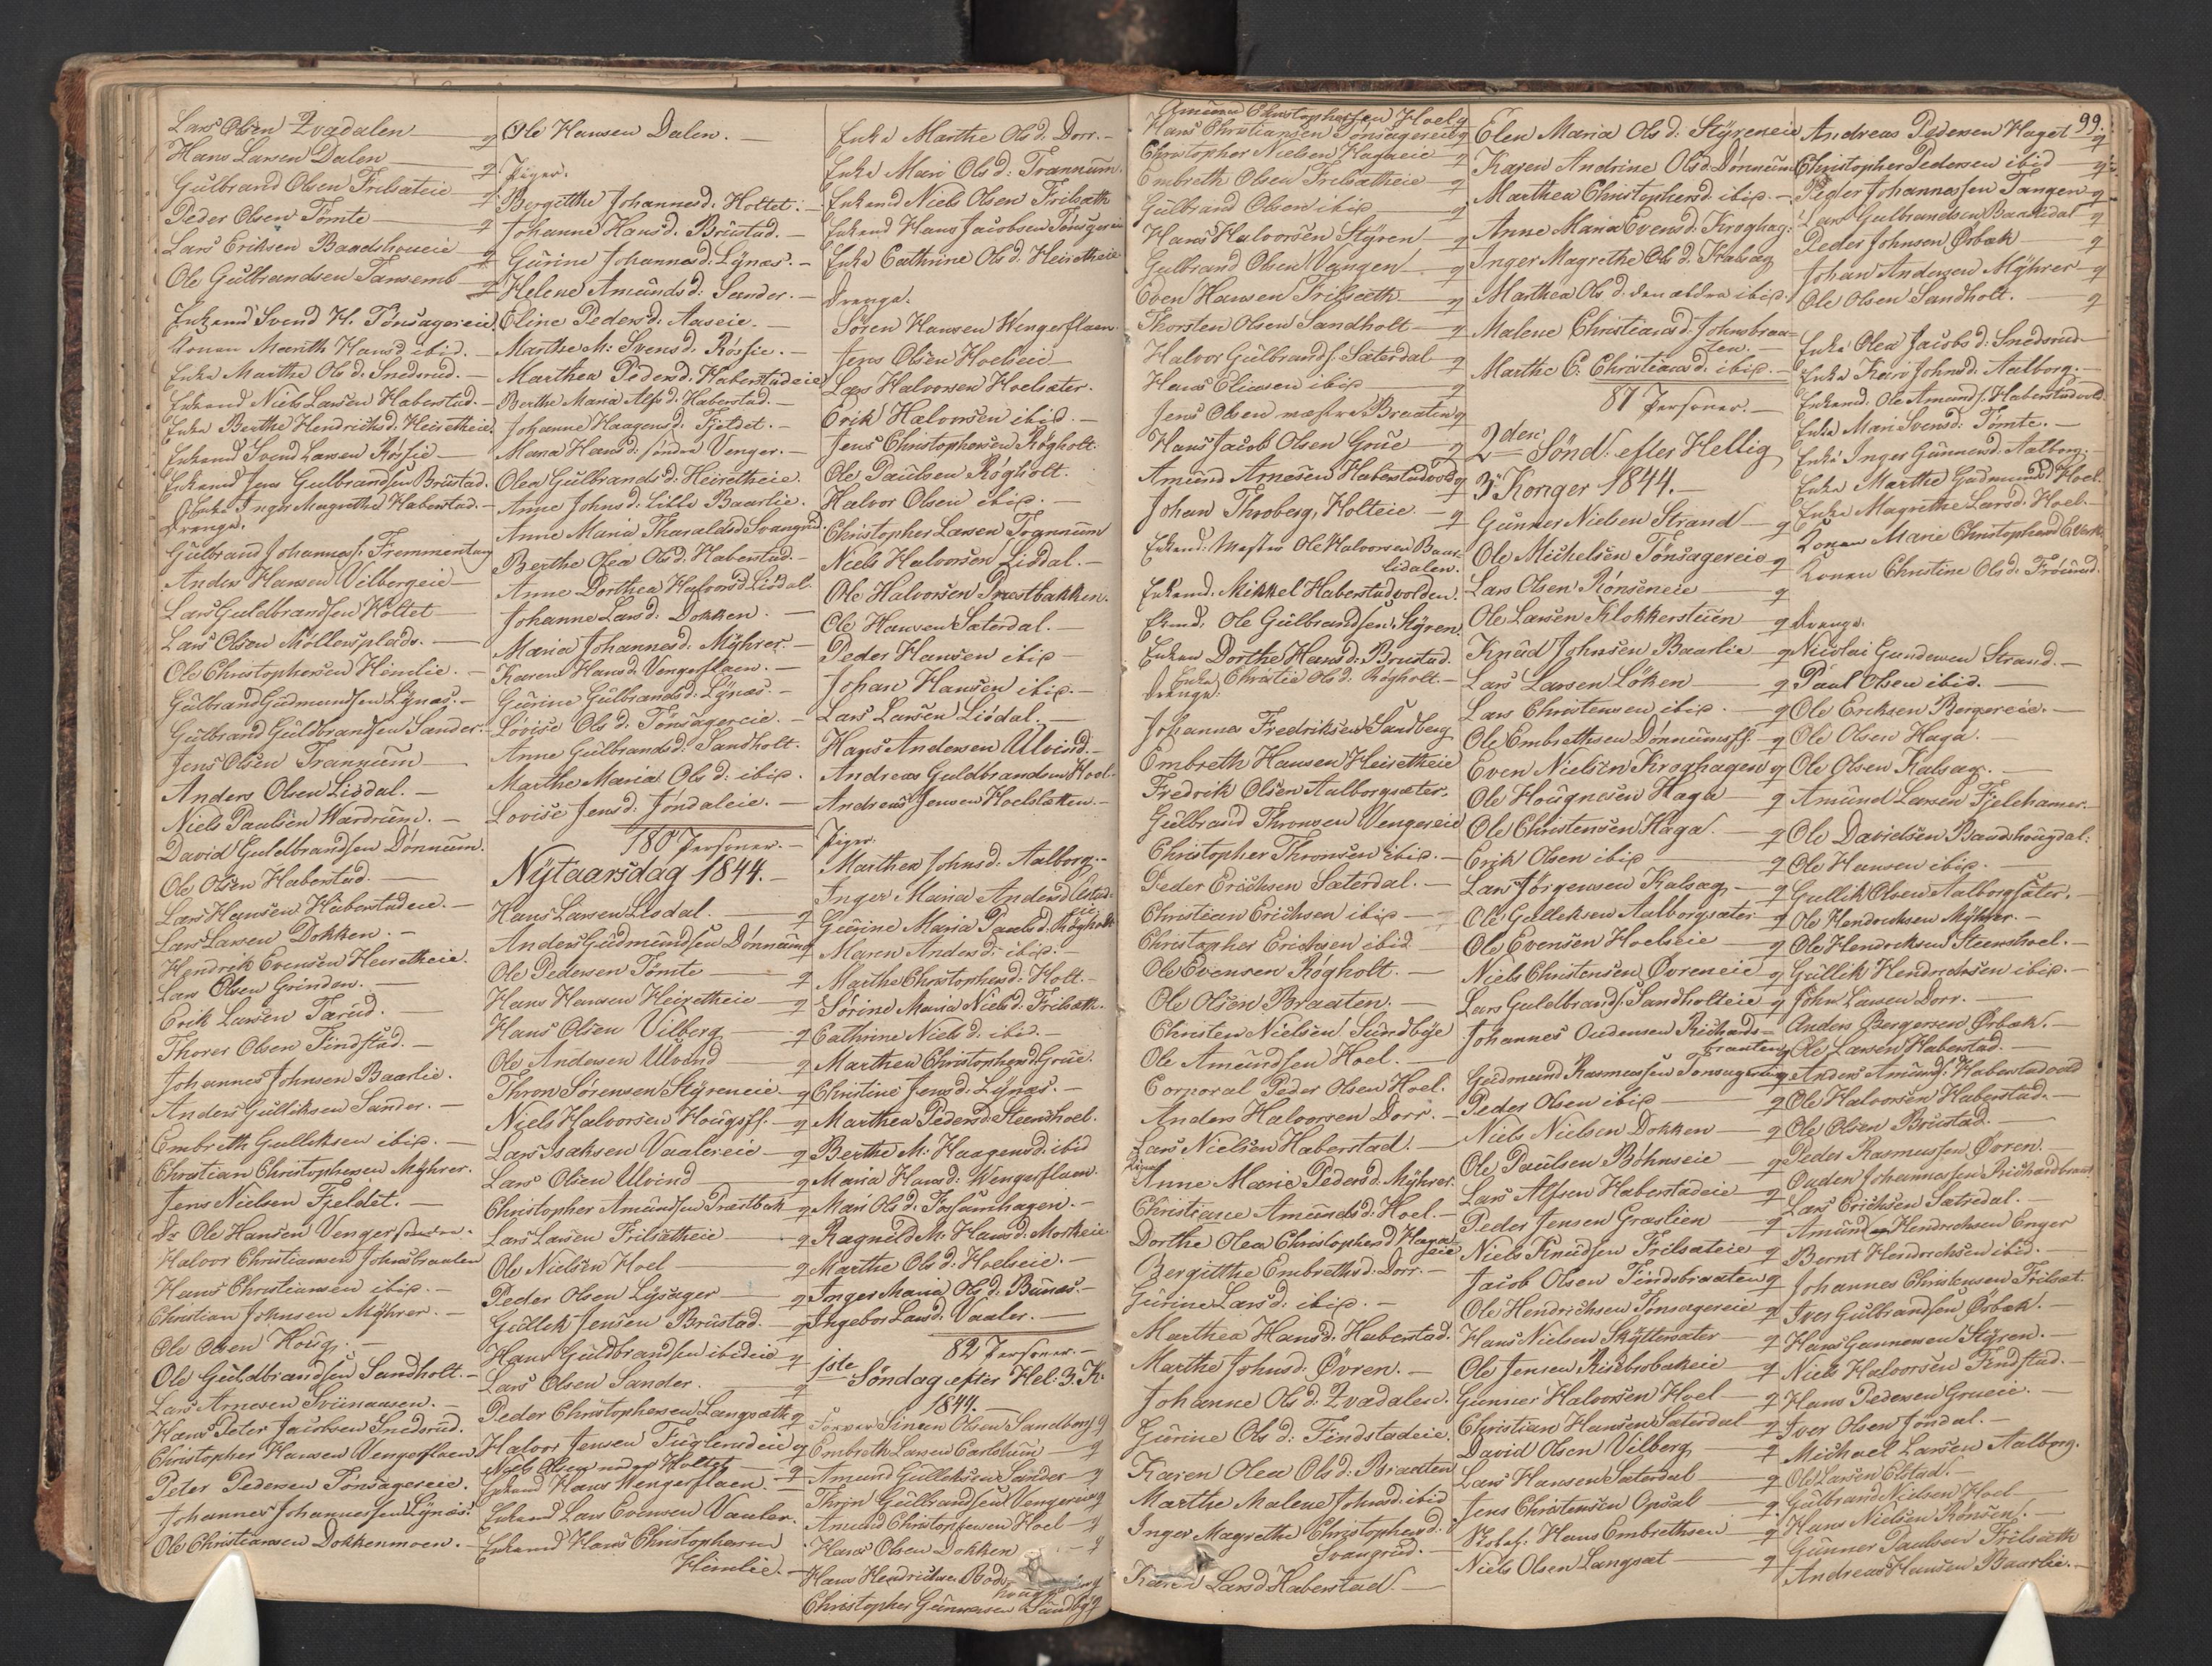 Lars Olsen Qvadalen q
Hans Larsen Dalen q
Gulbrand Olsen Frilsateie q
Peder Olsen Tømte q
Lars Eriksen Baadshoueie q
Ole Gulbrandsen Tansemb q
Enkemd Svend H. Tønsagereie
Konen Marith Hansd. ibid. -
Enke Marthe Ols d. Snedsrud. -
Enkemd Niels Larsen Haberstad. -
Enke Berthe Hendrichsd. Heiretheie.
Enkemd Svend Larsen Røsfie -
Enkemd Jens Gulbrandsen Brustad.
Enke Inger Magrethe Haberstad. -
Drenge.
Gulbrand Johannes. Fremmentang
Anders Hansen Vilbergeie -
Lars Guldbrandsen Holtet
Lars Olsen Møllersplads. -
Ole Christophersen Himlie. -
Gulbrand Gudmundsen Lynæs. -
Gulbrand Guldbrandsen Sander. -
Jens Olsen Trannum -
Anders Olsen Lisdal. -
Niels Paulsen Wardrum. -
David Guldbrandsen Dønnum.
Ole Olsen Haberstad. -
Lars Hansen Haberstadeie. -
Lars Larsen Dokken. -
Hendrik Evensen Heiretheie.
Lars Olsen Grinder. -
Erik Larsen Tærud. -
Thorer Olsen Findstad. -
Johannes Johnsen Baarlie.
Anders Gulliksen Sander. -
Embreth Gulliksen ibid. -
Christian Christophersen Myhrer.
Jens Nielsen Fjeldet. -
Ole Hansen Venger
Halvor Christiansen Johnsbraaten
Hans Christiansen ibid. -
Christian Johnsen Myhrer. -
Ole Olsen Houg. -
Ole Guldbrandsen Sandholt. -
Lars Arnesen Sviinaasen. -
Hans Peter Jacobsen Snedsrud.
Christopher Hansen Vengerflaen
Peter Pedersen Tønsagereie.
Johannes Johannessen Lynæs.
Ole Christiansen Dokkenmoen. -
Ole Hansen Dalen. -
Piger.
Bergitthe Johannesd. Holtet. -
Johanne Hansd. Brustad. -
Gurine Johannesd. Lynæs. -
Helene Amundsd. Sander. -
Eline Pedersd. Aaseie. -
Marthe M. Svensd. Røsfie. -
Marthea Pedersd. Haberstadeie
Berthe Maria Alfsd. Haberstad. -
Johanne Haagensd. Fjeldet. -
Maria Hansd. søndre Venger. -
Olea Gulbrandsd. Heiretheie.
Anne Johnsd. lille Baarlie. -
Anne Maria Tharaldsd. Svangrud.
Berthe Olea Ols d. Haberstad. -
Anne Dorthea Halvorsd. Lisdal.
Johanne Larsd. Dokken. -
Maria Johannesd. Myhrer. -
Karen Hansd. Vengerflaen. -
Gurine Gulbrandsd. Lynæs. -
Lovise Ols d. Tønsagereie. -
Anne Gulbrandsd. Sandholt.
Marthe Maria Ols d. ibid. -
Lovise Jensd. Jøndaleie. -
180 Personer. -
Nytaarsdag 1844. -
Hans Larsen Lisdal. q
Anders Gudmundsen Dønnum q
Ole Pedersen Tømte q
Hans Hansen Heiretheie q
Hans Olsen Vilberg q
Ole Andersen Ulvind q
Thron Sørensen Styreneie q
Niels Halvorsen Hougsff. q
Lars Isaksen Vaalereie q
Lars Olsen Ulvind q
Christopher Amundsen Præstbak q
Lars Larsen Frilsætheie q
Ole Nielsen Hoel q
Peder Olsen Lysager q
Gullik Jensen Brustad. q
Hans Guldbrandsen ibideie q
Lars Olsen Sander. q
Peder Christophersen Langsæth q
Halvor Jensen Fuglerudeie q
Niels Olsen nedre Holtet q
Enkemd Hans Vengerflaen. -
Enkemd Lars Evensen Vaaler.
Enkemd Hans Christophersen
Himlie. -
Enke Marthe Ols d. Dorr. -
Enke Mari Ols d. Trannum.
Enkemd Niels Olsen Frilsath
Enkemd Hans Jacobsen Tønsagereie
Enke Cathrine Ols d. Heiretheie
Drenge.
Søren Hansen Wengerflaen
Jens Olsen Hoelseie
Lars Halvorsen Hoelsæter.
Erik Halvorsen ibid. -
Jens Christophersen Røgholt.
Ole Paulsen Røgholt.
Halvor Olsen ibid. -
Christopher Larsen Tognum
Niels Halvorsen Lisdal. -
Ole Halvorsen Præstbakken.
Ole Hansen Sæterdal. -
Peder Hansen ibid -
Johan Hansen ibid. -
Lars Larsen Lisdal. -
Hans Andersen Ulvind. -
Andreas Guldbrandsen Hoel. -
Andreas Jensen Hoelsletten. -
Piger.
Marthea Johnsd. Aalborg. -
Inger Maria Andersd.
Gurine Maria Paulsd. Røgholt
Maren Andersd. ibid. -
Marthe Christophersd. Holt. -
Sørine Maria Nielsd. Frilsæth. -
Cathrine Niels d. ibid. -
Marthea Christophersd. Grue.
Christine Jensd. Lynæs. -
Marthea Pedersd. Steenshoel.
Berthe M. Haagensd. ibid
Maria Hansd. Wengerflaen.
Mari Ols d. Fossumhagen. -
Ragnild M. Hansd. Moskeie
Marthe Ols d. Hoelseie. -
Inger Maria Ols d. Bunæs. -
Ingebor Larsd. Vaaler. -
82 Personer. -
1ste Søndag efter Hel. 3. K.
1844. -
Simen Olsen Sandberg q
Embreth Larsen Carlshum q
Amund Gulliksen Sander q
Thron Gulbrandsen Vengereie q
Amund Christophersen Hoel q
Hans Olsen Dokken q
Hans Hendrichsen
Christopher Gunnersen Sundby q
Amund Christophersen Hoel q
Hans Christiansen Tønsagereie q
Christopher Nielsen Hagaeie q
Embreth Olsen Frilsætheie q
Gulbrand Olsen ibid q
Hans Halvorsen Styren q
Gulbrand Olsen Vangen q
Even Hansen Frilsæth q
Thorsten Olsen Sandholt q
Halvor Gulbrands. Sæterdal q
Hans Eliasen ibid q
Jens Olsen Braaten q
Hans Jacob Olsen Grue q
Amund Arnesen Haberstadvold q
Johan Throberg, Holteie. q
Enkemd. Ole Halvorsen Baar-
lidalen.
Enkemd. Mikkel Haberstadvolden.
Ole Gulbrandsen Styren.
Enken Dorthe Hansd. Brustad.
Enke Christie Ols d. Røgholt. -
Drenge.
Johannes Fredriksen Sandberg
Embreth Hansen Heiretheie
Fredrik Olsen Aalborgsæter.
Gulbrand Thronsen Vengereie
Christopher Thronsen ibid. -
Peder Erichsen Sæterdal. -
Christian Erichsen ibid -
Christopher Erichsen ibid
Ole Evensen Røgholt. -
Ole Olsen Braaten. -
Christen Nielsen Sundbye
Ole Amundsen Hoel. -
Corporal Peder Olsen Hoel.
Anders Halvorsen Dorr. -
Lars Nielsen Haberstad. -
Piger
Anne Marie Pedersd. Myhrer.
Christiance Amundsd. Hoel. -
Dorthe Olea Christophersd. Haga
eie
Bergitthe Embrethsd. Dorr. -
Gurine Larsd. ibid. -
Marthea Hansd. Haberstad.
Marthe Johnsd. Øvren. -
Johanne Ols d. Qvadalen.
Gurine Ols d. Findstadeie.
Karen Olea Ols d. Braaten
Marthe Malene Johnsd. ibid
Inger Magrethe Christophersd.
Svangrud. -
Karen Larsd. Haberstad. -
Elen Maria Ols d. Styreneie
Karen Andrine Ols d. Dønnum
Marthea Christophersd. ibid. -
Anne Maria Evensd. Kroghag.
Inger Magrethe Ols d. Kalsag
Marthea Ols d. den ældre ibid.
Malene Christiansd. Johnsbraa-
ten. -
Marthe C. Christiansd. ibid. -
87 Personer. -
2den Sønd. efter Hellig
3 Konger 1844. -
Gunner Nielsen Strand q
Ole Michelsen Tønsagereie q
Lars Olsen Rønseneie q
Ole Larsen Klokkerstuen q
Knud Johnsen Baarlie q
Lars Larsen Løken q
Lars Christensen ibid. q
Ole Embrethsen Dønnumsff. q
Even Nielsen Kroghagen q
Ole Hougnesen Haga q
Ole Christensen Haga. q
Erik Olsen ibid q
Lars Jørgensen Kalsag q
Ole Gulleksen Aalborgsæter q
Ole Evensen Hoelseie q
Niels Christensen Øvreneie q
Lars Guldbrands. Sandholteie q
Johannes Oudensen Richards-
braaten q
Gudmund Rasmussen Tønsagereie q
Peder Olsen ibid q
Niels Nielsen Dokken q
Ole Paulsen Bøhnseie q
Lars Alfsen Haberstadeie q
Peder Jensen Græslien q
Niels Knudsen Frilsateie q
Jacob Olsen Findsbraaten q
Ole Hendrichsen Tønsagereie q
Hans Nielsen Skyttersæter q
Ole Jensen Risebrobakeie q
Gunner Halvorsen Hoel q
Christian Hansen Sæterdal q
David Olsen Vilberg q
Lars Hansen Sæterdal q
Jens Christensen Opsal q
Hans Embrethsen q
Niels Olsen Langsæt q
99.
Andreas Pedersen Haget q
Christopher Pedersen ibid q
Peder Johannessen Tangen q
Lars Gulbrandsen Baarlidal q
Peder Johnsen Ørbæk q
Johan Andersen Myhrer q
Ole Olsen Sandholt. q
Enke Olea Jacobsd. Snedsrud. -
Enke Kari Johnsd. Aalborg. -
Enkemd. Ole Amunds. Haberstadvold.
Enke Mari Svensd. Tømte. -
Enke Inger Gunnersd. Aalborg. -
Enke Marthe Gudmundsd. Hoel.
Enke Magrethe Larsd. Hoel. -
Konen Marie Christophersd.
Konen Christine Ols d. Frøirud.
Drenge.
Nicolai Gundersen Strand. -
Paul Olsen ibid. -
Ole Eriksen Bergereie. -
Ole Olsen Haga. -
Ole Olsen Kalsag. -
Amund Larsen Fjelehamer -
Ole Davidsen Baadshougdal.
Ole Hansen ibid. -
Gullik Olsen Aalborgsæter. -
Ole Hendrichsen Myhrer. -
Ole Hendriksen Steenshoel. -
Gullik Hendrichsen ibid. -
John Larsen Dorr. -
Anders Børgersen Ørbæk. -
Ole Larsen Haberstad. -
Anders Amunds. Haberstadvold
Ole Halvorsen Haberstad. -
Ole Olsen Brustad. -
Peder Rasmussen Øvren. -
Ouden Johannessen Richardsbraat
Lars Erichsen Sæterdal. -
Amund Hendrichsen Enger
Bernt Hendrichsen ibid. -
Johannes Christensen Frilsæt.
Iver Gulbrandsen Ørbæk. -
Hans Gunnersen Styren. -
Niels Halvorsen Findstad. -
Hans Pedersen Grueie. -
Iver Olsen Jøndal. -
Michael Larsen Aalborg.
Ole Larsen Elstad. -
Gulbrand Nielsen Hoel -
Hans Nielsen Rønsen. -
Gunner Paulsen Frilsæth
Andreas Hansen Baarlie. -